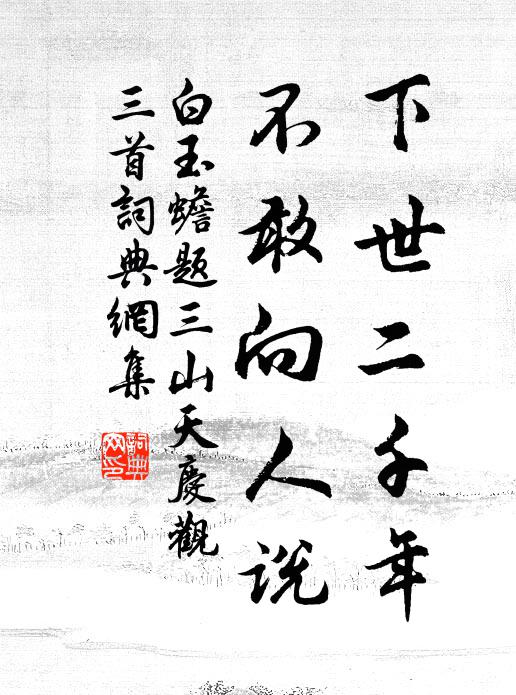 下世二千年
不敢向人說
白玉蟾題三山天慶觀
三首詞典網集
詞典
网印